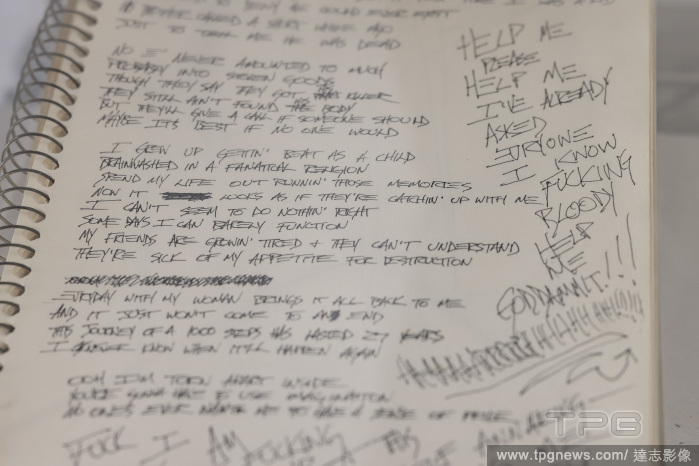 JUST TO TELL ME HE WAS DEAD
NO E' NEVER AMOUNTED TO MUCH
PROBABLY INTO STOLEN GOODS
THOUGH THEY SAY THEY GOT KILLER
THEY STILL AIN'T FOUND THE BODY
BUT THEY'LL GIVE A CALL IF SOMEONE SHOULD
MAYBE IT'S BEST IF NO ONE WOULD
I GREW UP GETTIN' BEAT AS A CHILD
BRAINWASHED IN A FANATICAL RELIGION
SPEND MY LIFE OUT RUNNIN' THOSE MEMORIES
NOW IT LOOKS AS IF THEY'RE CATCHIN' UP WITH ME
I CAN'T SEEM TO DO NOTHIN' RIGHT
SOME DAYS I CAN BARELY FUNCTION
MY FRIENDS ARE GROWIN' TIRED + THEY CAN'T UNDERSTAND
THEY'RE SICK OF MY APPETITE FOR DESTRUCTION
EVRYDAY WITH MY WOMAN BRINGS IT ALL BACK TO ME
AND IT JUST WON'T COME TO AN END
THIS JOURNEY OF A 1000 STEPS HAS LASTED 27 YEARS
I KNOW WHEN IT'LL HAPPEN AGAIN
OOH I'M TORN APART INSIDE
YOU'RE GONNA HAVE TO USE IMAGINATION
NO ONE'S EVER ME TO HAVE A SENSE OF PRIDE
FUCK I AM FUCKING
HELP ME
PLEASE
HELP ME
I'VE ALREADY
ASKED
EVRYONE
I KNOW
FUCKING
BLOODY
HELP
ME
GODDAMNIT!!!
TPG
www.tpgnews.com/ 達志影像